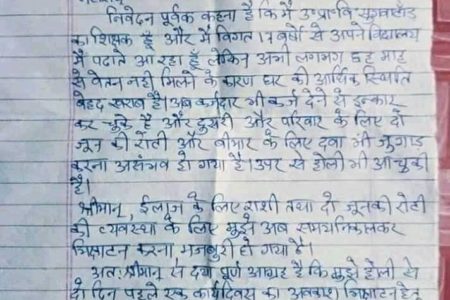 निवेदन पूर्वक कहना है कि मैं उ॰प्रा॰वि॰
का शिक्षक हूँ और मैं विगत 14 वर्षो से अपने विद्यालय
में पढाते आ रहा हूँ लेकिन अभी लगभग छह माह
से वेतन नही मिलने के कारण घर की आर्थिक स्थिति
बेहद खराब है। अब कर्जदार भी कर्ज देने से इन्कार
कर चुके है और दुसरी ओर परिवार के लिए दो
जून की रोटी और बीमार के लिए दवा भी जुगाड़
करना असंभव हो गया है। उपर से होली भी आ चुकी
है।
श्रीमान्, ईलाज के लिए राशी तथा दो जून की रोटी
की व्यवस्था के लिए मुझे अब समय निकालकर
भिक्षाटन करना मजबुरी हो गया है।
अतः श्रीमान् से दया पूर्ण आग्रह है कि मुझे होली से
दो दिन पहले एक कार्यदिवस का अवकाश भिक्षाटन हेतु